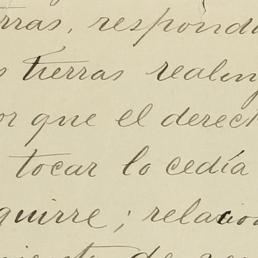 rras, respondi
s tierras realen
or que el derech
tocar lo cedía
guirre; relacion
iento de